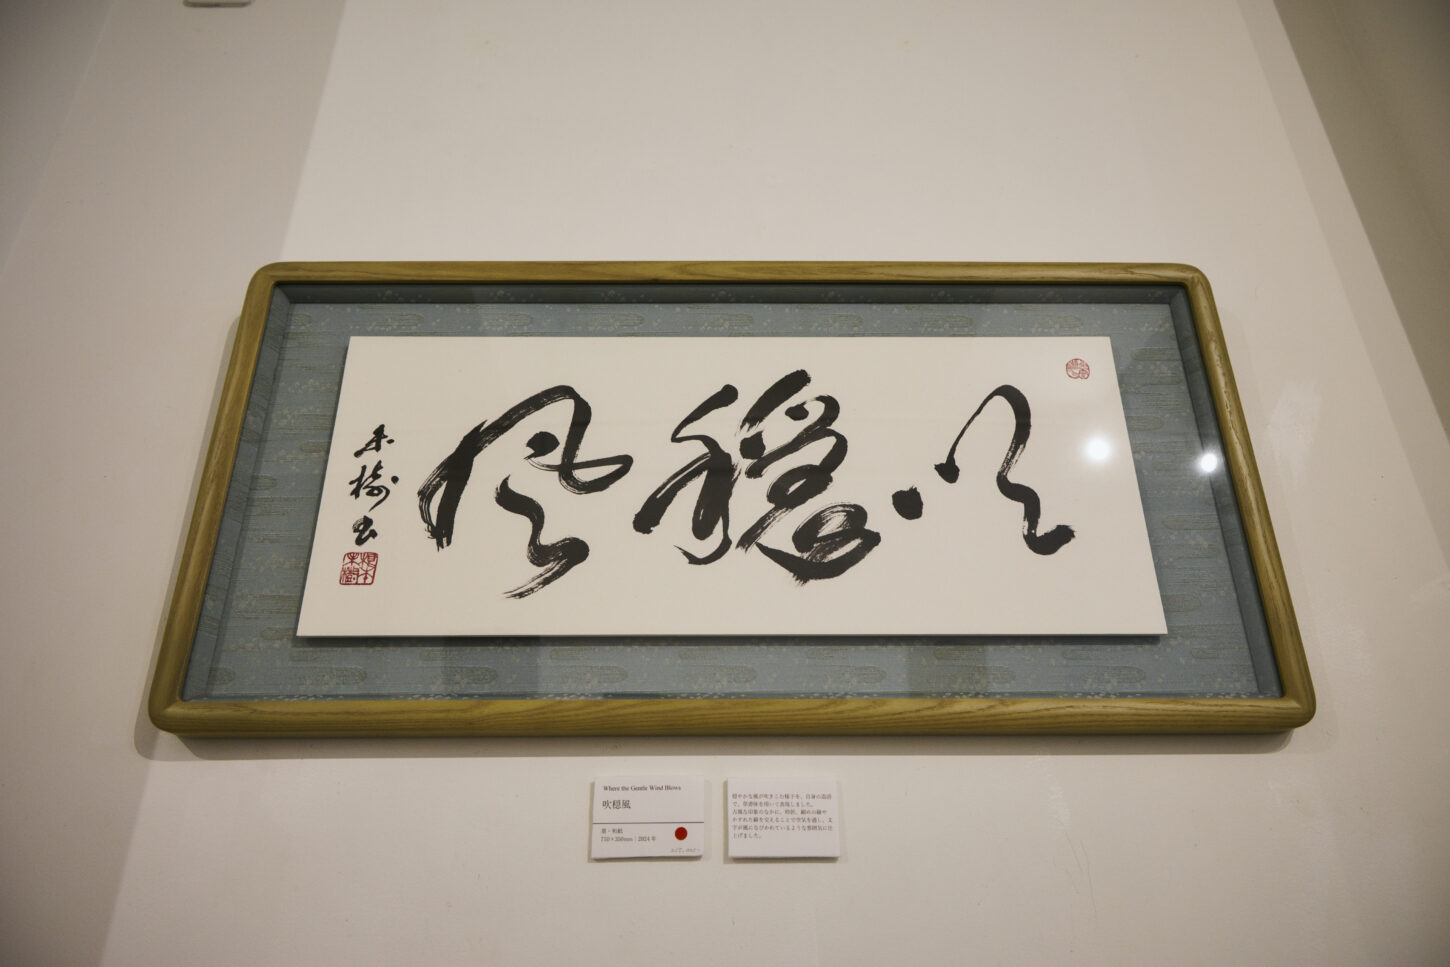 吹穏風
Where the Gentle Wind Blows
吹穏風
墨・和紙
710×350mm｜2024 年
穏やかな風が吹きこむ様子を、自身の造語
で、草書体を用いて表現しました。
古風な印象のなかに、時折、細めの線や
かすれた線を交えることで空気を通し、文
字が風になびかれているような雰囲気に仕
上げました。